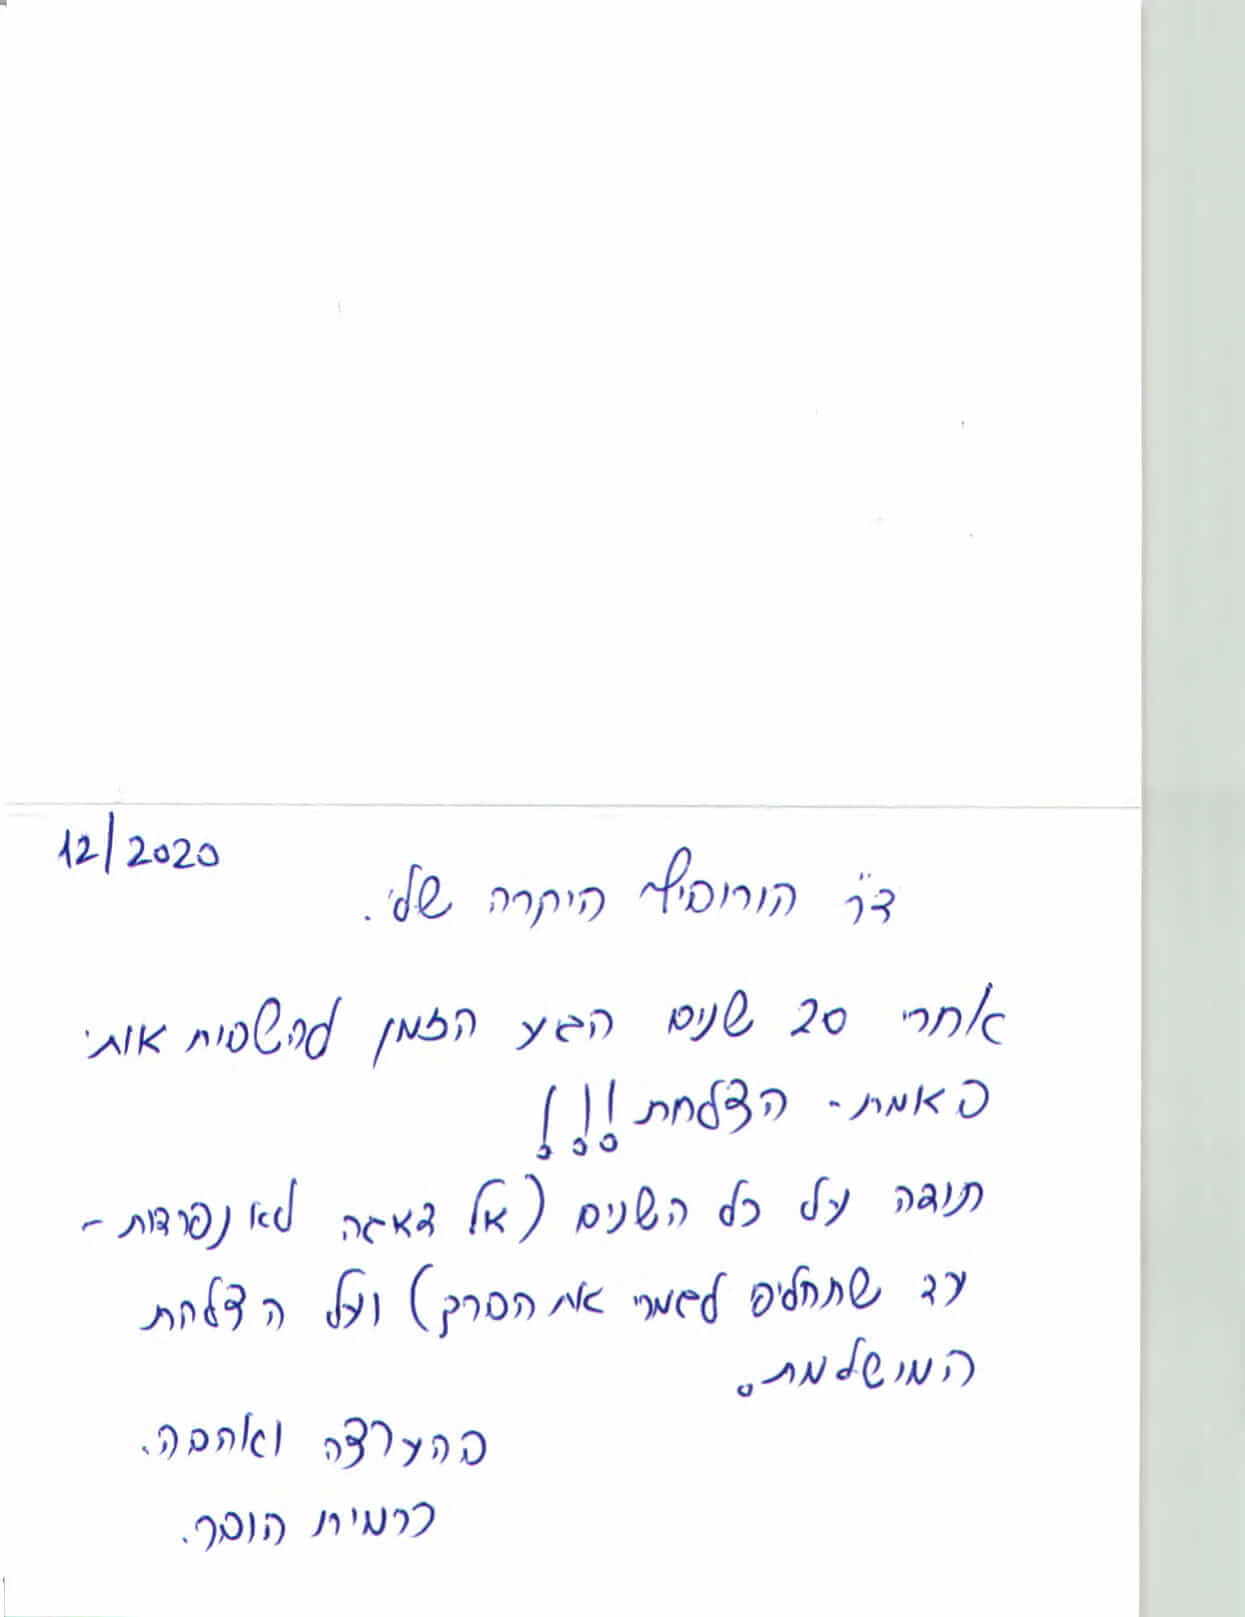 12/2020
ד"ר הורוביץ היקרה שלי.
אחרי 20 שנים הגיע הזמן להשבית אותי
באמת - הצלחת!!!
תודה על כל השנים (אל דאגה לא נפרדות -
עד שתחליפי לגמרי את הברק) ועל הצלחת
המושלמת.
בהערצה ואהבה.
כרמית הובר.